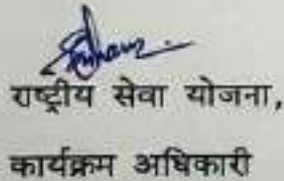 राष्ट्रीय सेवा योजना,
कार्यक्रम अधिकारी